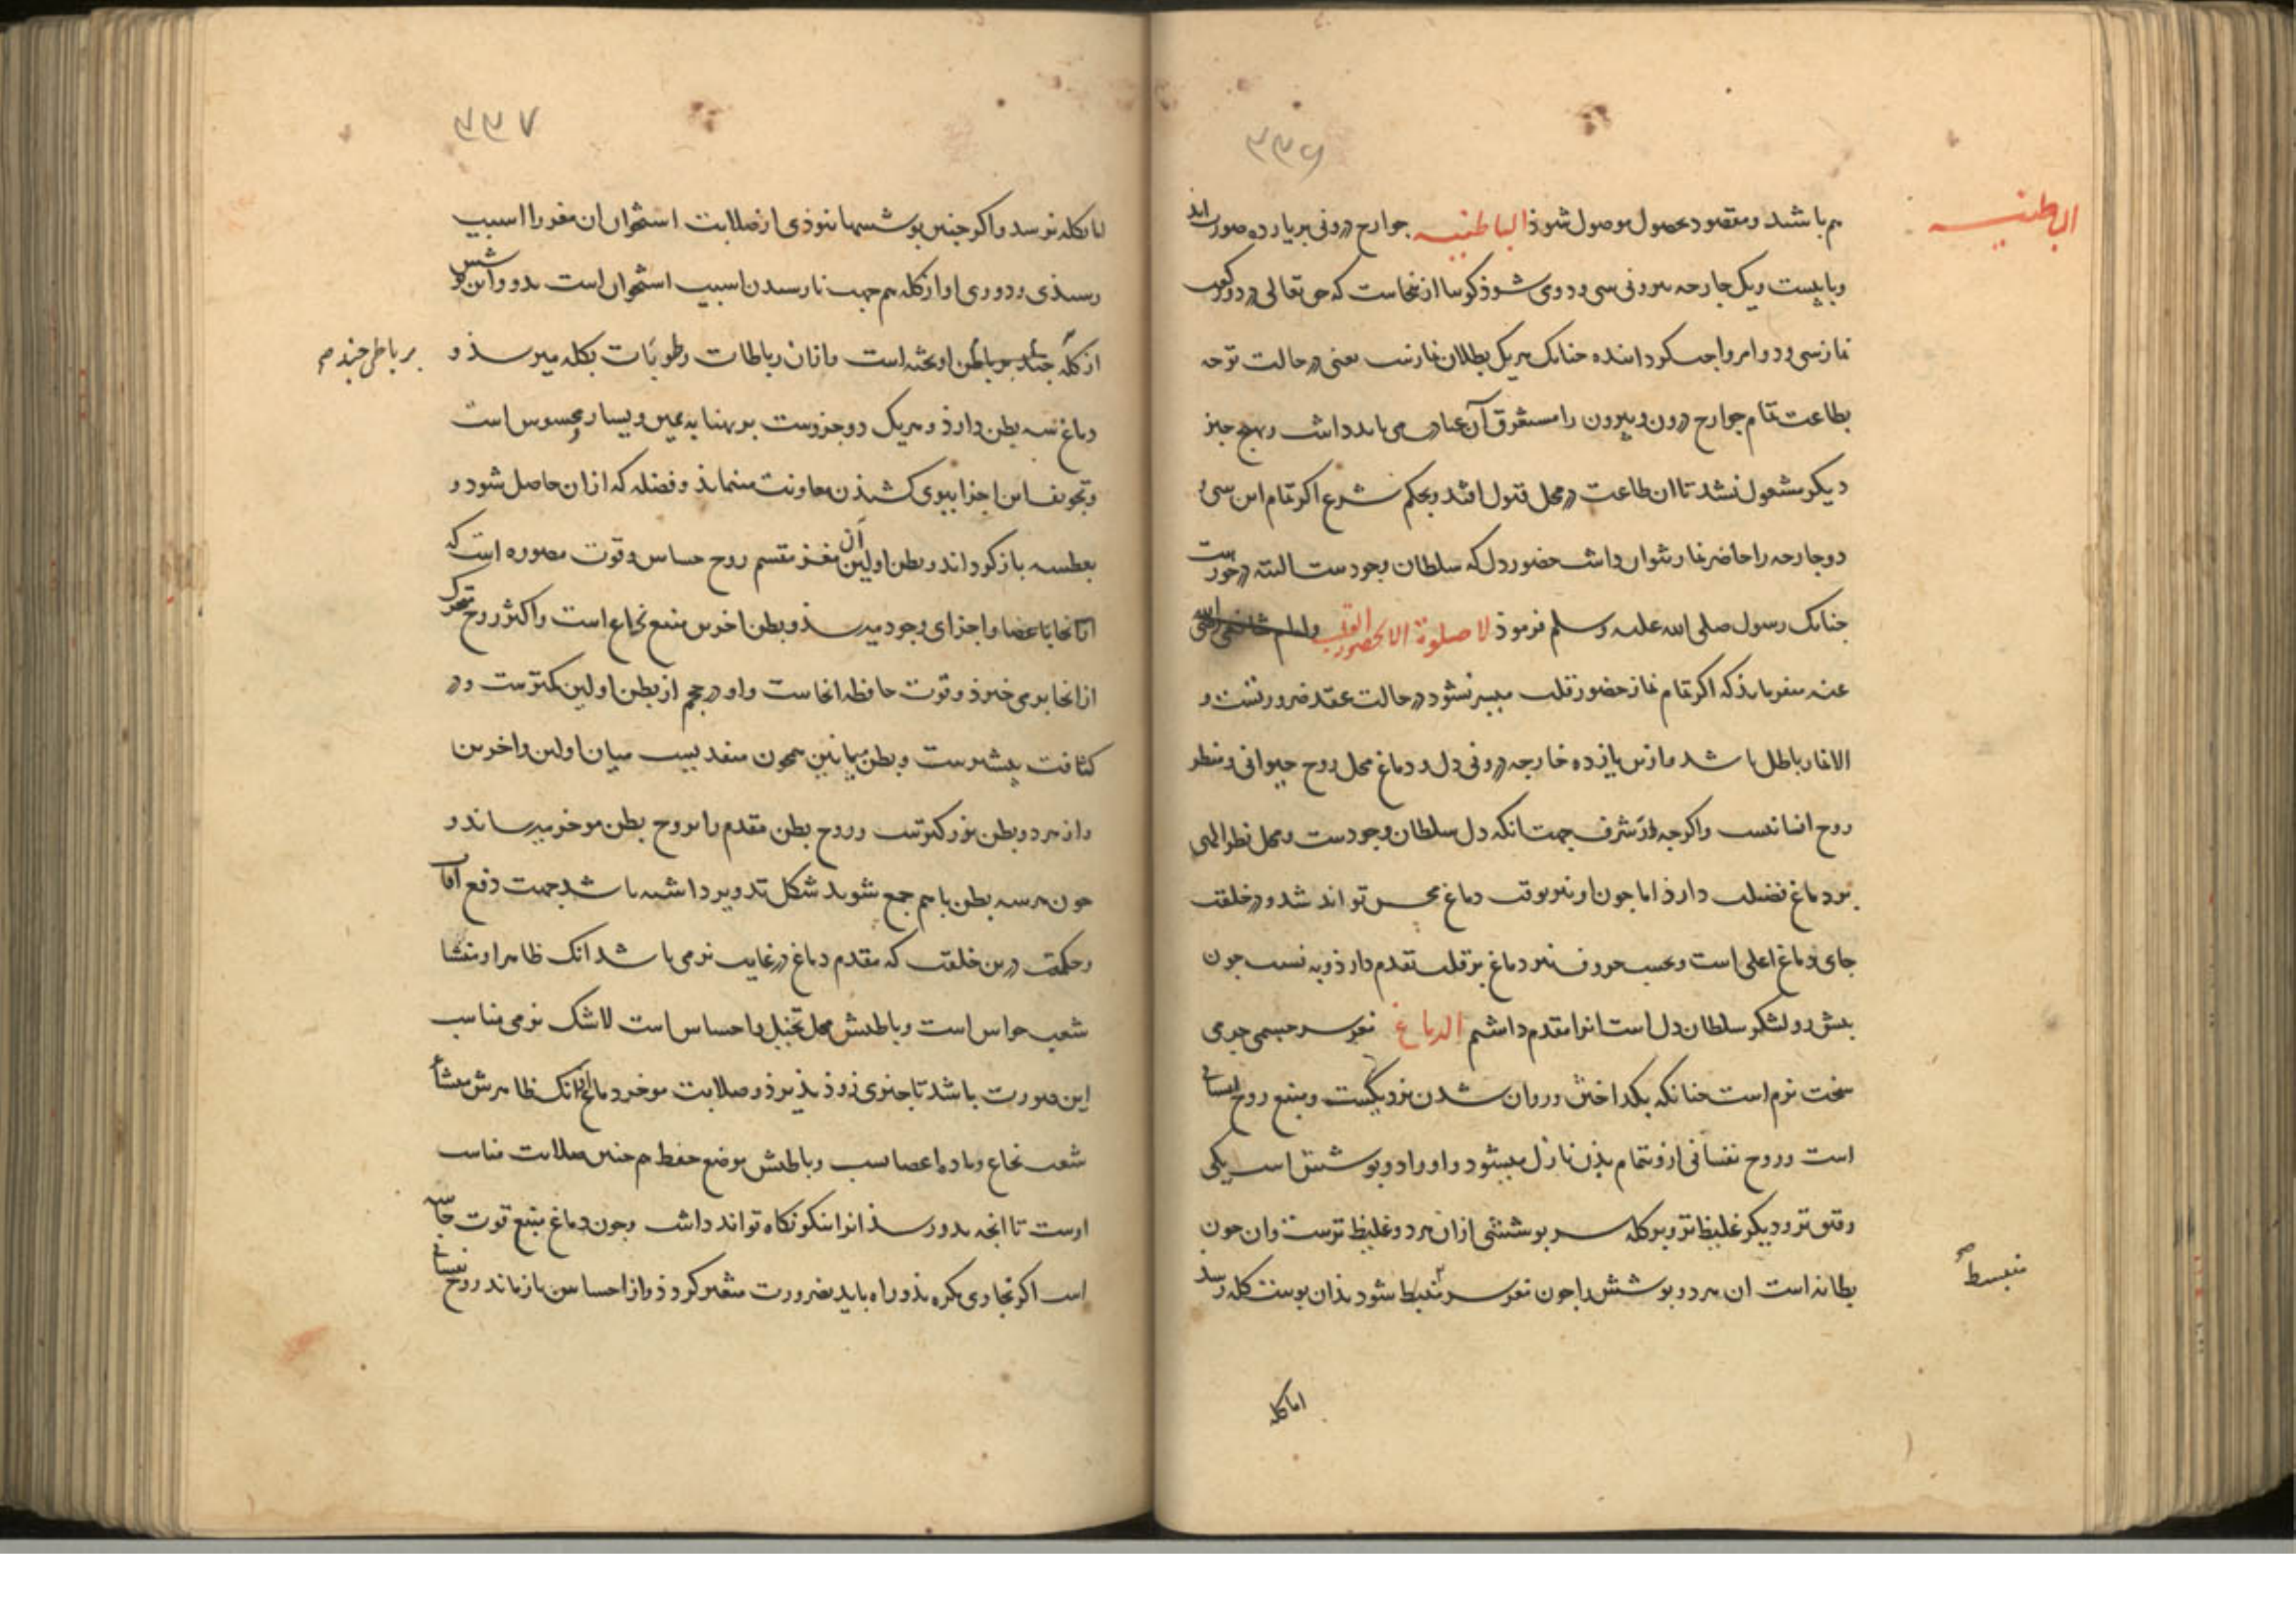 ۳۳۶
الباطنیه
هم باشد و مقصود بحصول موصول شوذ الباطنیه جوارح درونی بر یازده صورت‌اند
و با بیست و یک جارحه بیرونی سی و دو می شوذ کوییا از ینجاست که حق تعالی در دو رکعت
نماز سی و دو امر واجب کردانیده جنانک بهر یک بطلان نمازست یعنی در حالت توجه
بطاعت تمام جوارح درون و بیرون را مستغرق آن عبادت می باید داشت و بهیج جیز
دیکر مشغول نشد تا ان طاعت در محل قبول افتد و بحکم شرع اکر تمام این سی و
دو جارحه را حاضر نماز نتوان داشت حضور دل که سلطان وجودست البته در خورست
جنانک رسول صلی الله علیه و سلم فرموذ لا صلوة الا بحضور القلب و امام شافعی رضی الله
عنه میفرمایذ که اکر تمام نماز حضور قلب میسر نشود در حالت عقد ضرورتست و
الا نماز باطل باشد و ازین یازده خارجه درونی دل و دماغ محل روح حیوانی و منظر
روح انسانیست و اکرجه از شرف جهت انکه دل سلطان وجودست و محل نظر الهی
بر دماغ فضیلت دارذ اما جون او نیز بوقت دماغ محس تواند شد و در خلقت
جای دماغ اعلی است و بحسب حروف نیز دماغ بر قلب تقدم دارذ و به نسبت جون
بیش رو لشکر سلطان دل است انرا مقدم داشتم الدماغ مغز سر جسمی جربی
سخت نرم است جنانکه بکداختن و روان شدن نزدیکست و منبع روح نفسانی
است و روح نفسانی ازو بتمام بذن نازل میشود و او را دو بوشش است یکی
رقیق تر و دیکر غلیظ تر و بر کله سر بوششی از ان هر دو غلیظ ترست و ان جون
بطانه است ان هر دو بوشش را جون مغز سر منبسط شود بذان بوست کله رسد
منبسط صح
اما کله
۳۳۷
اما بکله نرسد و اکر جنین بوششها نبوذی از صلابت استخوان ان مغز را اسیب
رسیذی و دوری او از کله هم جهت نارسیدن اسیب استخوان است بدو و این بوشش
از کله جند بر باطن اویخته است و از ان رباطات رطوبات بکله میرسذ و
بر باطن جند صح
دماغ سه بطن دارذ و هر یک دو جزوست بر بهنا به یمین و یسار محسوس است
و تجویف این اجزا ببوی کشیذن معاونت مینمایذ و فضله که از ان حاصل شود و
بعطسه باز کرداند و بطن اولین آن مغز مقسم روح حساس و قوت مصوره است که
از انجا باعضا و اجزای وجود میرسذ و بطن اخرین منبع نخاع است و اکثر روح متحرک
از انجا برمی خیزذ و قوت حافظه انجاست و او در حجم از بطن اولین کمترست و در
کثافت بیشترست و بطن میانین همجون منفذیست میان اولین و اخرین
و از هر دو بطن بزرکترست و روح بطن مقدم را بروح بطن موخر میرساند و
جون هر سه بطن با هم جمع شوند شکل تدویر داشته باشد جهت دفع آفات
و حکمت درین خلقت که مقدم دماغ در غایت نرمی باشد انک ظاهر او منشا
شعب حواس است و باطنش محل تخیل با احساس است لاشک نرمی مناسب
این صورت باشد تا جنوی زوذ بذیرذ و صلابت موخر دماغ انک ظاهرش منشاء
شعب نخاع و ماده اعصابست و باطنش موضع حفظ هم جنین صلابت مناسب
اوست تا انجه بدو رسذ انرا نیکو نکاه تواند داشت و جون دماغ منبع قوت حاسه
است اکر بخاری بکره بذو راه یابد بضرورت متغیر کردذ و از احساس بازماند روح نفسانی